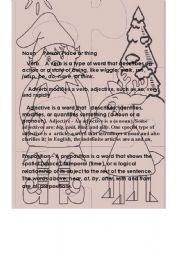 Noun Person Place or thing
Verb A verb is a type of word that describes an
action or a state of being, like wiggle, walk, run,
jump, be, do, have, or think.
Adverb modifies a verb, adjective, such as so, very
and rapidly
Adjective is a word that describes, identifies,
modifies, or quantifies something (a noun or a
pronoun). Adjective - An adjective is a (a noun). Some
adjectives are: big, cold, blue, and silly. One special type of
adjective is an article, a word that introduces a noun and also
clarifies it; in English, the indefinite articles are a and an.
Preposition - A preposition is a word that shows the
spatial (space), temporal (time), or a logical
relationship of its object to the rest of the sentence.
The words above, near, at, by, after, with and from
are all prepositions.